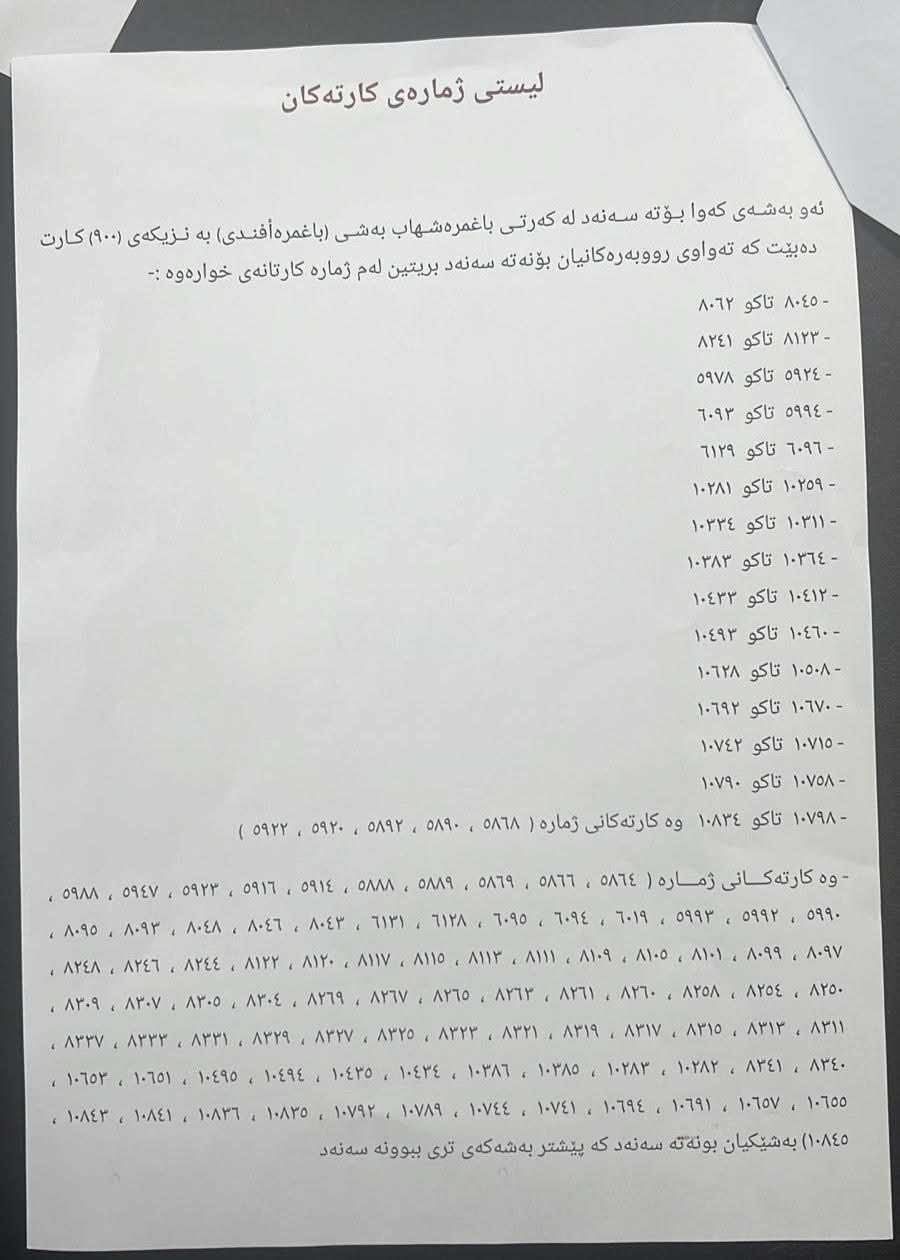 لیستی ژمارەی کارتەکان
ئەو بەشەی کەوا بۆتە سەنەد لە کەرتی باغمرەشهاب بەشی (باغمرەأفندی) بە نزیکەی (٩٠٠) کارت
دەبێت کە تەواوی رووبەرەکانیان بۆنەتە سەنەد بریتین لەم ژمارە کارتانەی خوارەوە :-
- ٨٠٤٥ تاکو ٨٠٦٢
- ٨١٢٣ تاکو ٨٢٤١
- ٥٩٢٤ تاکو ٥٩٧٨
- ٥٩٩٤ تاکو ٦٠٩٣
- ٦٠٩٦ تاکو ٦١٢٩
- ١٠٢٥٩ تاکو ١٠٢٨١
- ١٠٣١١ تاکو ١٠٣٣٤
- ١٠٣٦٤ تاکو ١٠٣٨٣
- ١٠٤١٢ تاکو ١٠٤٣٣
- ١٠٤٦٠ تاکو ١٠٤٩٣
- ١٠٥٠٨ تاکو ١٠٦٢٨
- ١٠٦٧٠ تاکو ١٠٦٩٢
- ١٠٧١٥ تاکو ١٠٧٤٢
- ١٠٧٥٨ تاکو ١٠٧٩٠
- ١٠٧٩٨ تاکو ١٠٨٣٤ وە کارتەکانی ژمارە ( ٥٨٦٨ ، ٥٨٩٠ ، ٥٨٩٢ ، ٥٩٢٠ ، ٥٩٢٢ )
- وە کارتەکانی ژمارە ( ٥٨٦٤ ، ٥٨٦٦ ، ٥٨٦٩ ، ٥٨٨٩ ، ٥٨٨٨ ، ٥٩١٤ ، ٥٩١٦ ، ٥٩٢٣ ، ٥٩٤٧ ، ٥٩٨٨ ،
٥٩٩٠ ، ٥٩٩٢ ، ٥٩٩٣ ، ٦٠١٩ ، ٦٠٩٤ ، ٦٠٩٥ ، ٦١٢٨ ، ٦١٣١ ، ٨٠٤٣ ، ٨٠٤٦ ، ٨٠٤٨ ، ٨٠٩٣ ، ٨٠٩٥ ،
٨٠٩٧ ، ٨٠٩٩ ، ٨١٠١ ، ٨١٠٥ ، ٨١٠٩ ، ٨١١١ ، ٨١١٣ ، ٨١١٥ ، ٨١١٧ ، ٨١٢٠ ، ٨١٢٢ ، ٨٢٤٤ ، ٨٢٤٦ ، ٨٢٤٨ ،
٨٢٥٠ ، ٨٢٥٤ ، ٨٢٥٨ ، ٨٢٦٠ ، ٨٢٦١ ، ٨٢٦٣ ، ٨٢٦٥ ، ٨٢٦٧ ، ٨٢٦٩ ، ٨٣٠٤ ، ٨٣٠٥ ، ٨٣٠٧ ، ٨٣٠٩ ،
٨٣١١ ، ٨٣١٣ ، ٨٣١٥ ، ٨٣١٧ ، ٨٣١٩ ، ٨٣٢١ ، ٨٣٢٣ ، ٨٣٢٥ ، ٨٣٢٧ ، ٨٣٢٩ ، ٨٣٣١ ، ٨٣٣٣ ، ٨٣٣٧ ،
٨٣٤٠ ، ٨٣٤١ ، ١٠٢٨٢ ، ١٠٢٨٣ ، ١٠٣٨٥ ، ١٠٣٨٦ ، ١٠٤٣٤ ، ١٠٤٣٥ ، ١٠٤٩٤ ، ١٠٤٩٥ ، ١٠٦٥١ ، ١٠٦٥٣ ،
١٠٦٥٥ ، ١٠٦٥٧ ، ١٠٦٩١ ، ١٠٦٩٤ ، ١٠٧٤١ ، ١٠٧٤٤ ، ١٠٧٨٩ ، ١٠٧٩٢ ، ١٠٨٣٥ ، ١٠٨٣٦ ، ١٠٨٤١ ، ١٠٨٤٣ ،
١٠٨٤٥) بەشێکیان بونەتە سەنەد کە پێشتر بەشەکەی تری ببوونە سەنەد